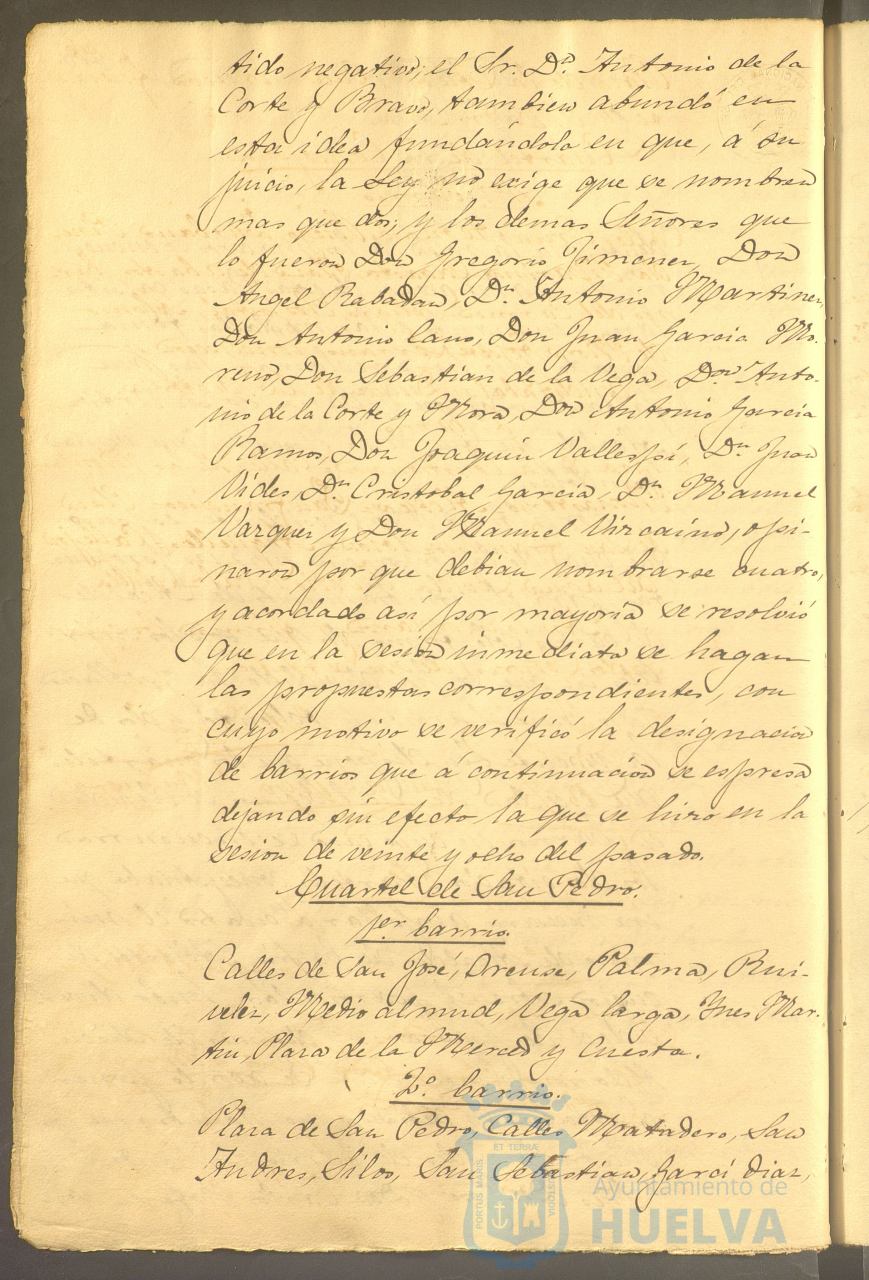 tido negativo; el Sr. Dn. Antonio de la
Corte y Bravo, tambien abundó en
esta idea fundándola en que, á su
juicio, la Ley no exige que se nombren
mas que dos; y los demas Señores que
lo fueron Don Gregorio Jimenez, Don
Angel Rabadan, Dn. Antonio Martinez,
Don Antonio Cano, Don Juan Garcia Mo-
reno, Don Sebastian de la Vega, Don Anto-
nio de la Corte y Mora, Don Antonio Garcia
Ramos, Don Joaquin Vallespí, Dn. Juan
Vides, Dn. Cristobal Garcia, Dn. Manuel
Vazquez y Don Manuel Vizcaino, opi-
naron por que debian nombrarse cuatro,
y acordado así por mayoría se resolvió
que en la sesion inmediata se hagan
las propuestas correspondientes, con
cuyo motivo se verificó la designacion
de barrios que á continuacion se espresa
dejando sin efecto la que se hizo en la
sesion de veinte y ocho del pasado.
Cuartel de San Pedro.
1er. barrio.
Calles de San José, Orense, Palma, Rui-
velez, Medio almud, Vega larga, Ynes Mar-
tin, Plaza de la Merced y Cuesta.
2º. barrio.
Plaza de San Pedro, Calles Matadero, San
Andres, Silos, San Sebastian, Garci diaz,
PORTUS MARIS ET TERRAE CUSTODIA
Ayuntamiento de
HUELVA